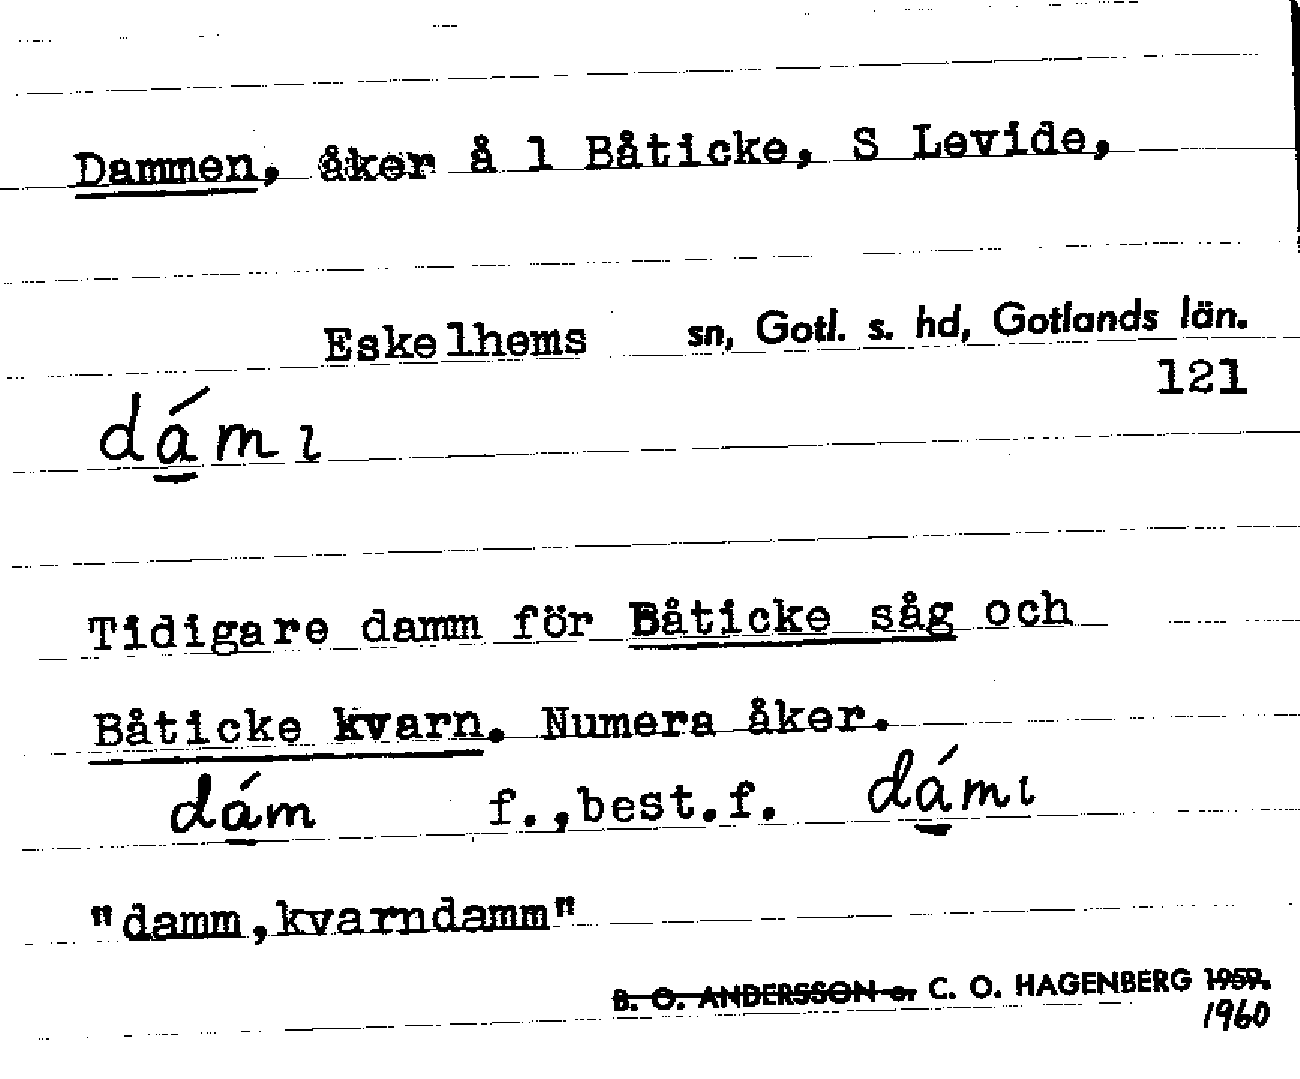 Dammen, åker å 1 Båticke, S Levide,
Eskelhems sn, Gotl. s. hd, Gotlands län.
121
dá̱mɩ
Tidigare damm för Båticke såg och
Båticke kvarn. Numera åker.
dá̱m f.,best.f. dá̱mɩ
"damm,kvarndamm"
B. O. ANDERSSON o. C. O. HAGENBERG 1959.
1960